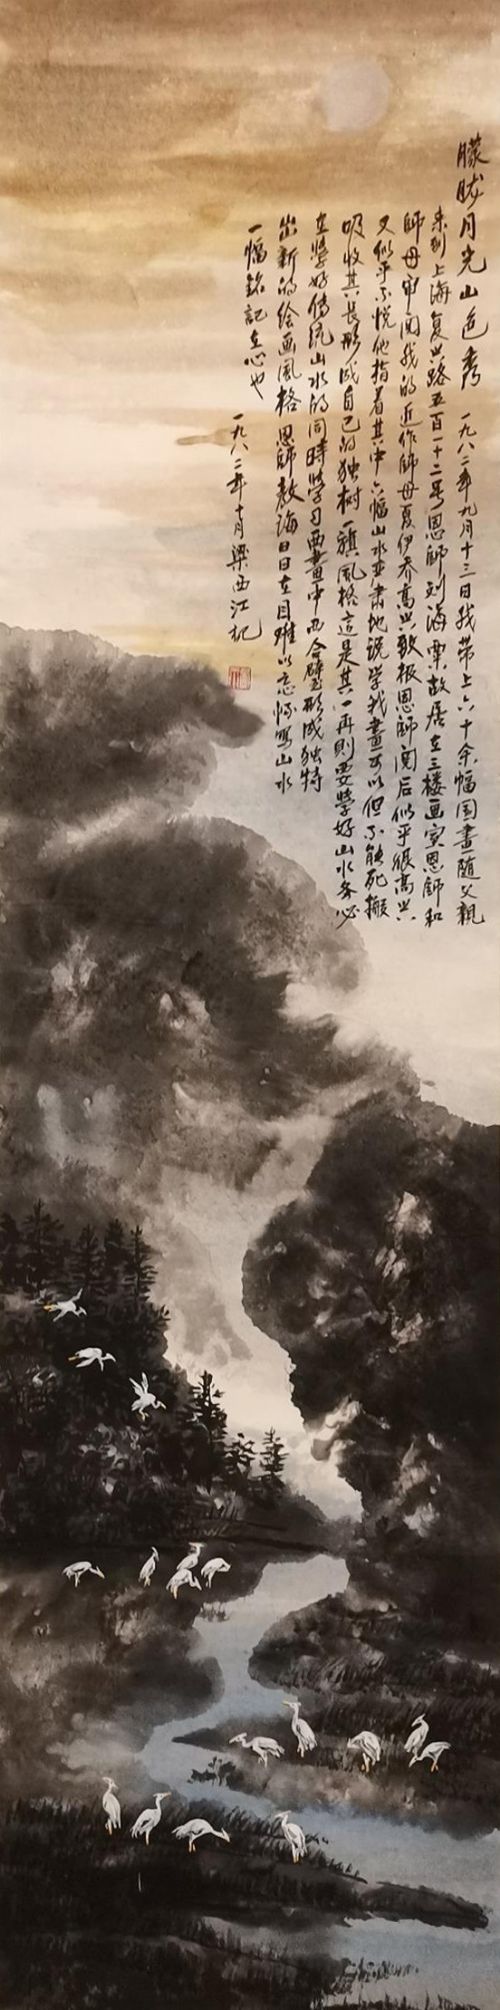 朦胧月光山色秀 一九八二年九月十三日我带上六十余幅国畫随父親
来到上海复兴路五百一十二号恩師刘海粟故居在三楼画室恩師和
師母审阅我的近作師母夏伊乔高兴致极恩師阅后似乎很高兴
又似乎不悦他指着其中六幅山水严肃地说学我畫可以但不能死搬
吸收其长形成自己的独树一旗風格這是其一再則要学好山水务必
在学好传统山水的同時学习西畫中西合璧形成独特
出新的绘画風格恩師教诲日日在目难以忘怀写山水
一幅銘記在心也 一九八二年十月梁西江記